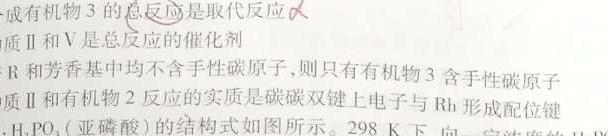 成有机物 3 的总反应是取代反应
质Ⅱ和Ⅴ是总反应的催化剂
R 和芳香基中均不含手性碳原子,则只有有机物 3 含手性碳原子
质Ⅱ和有机物 2 反应的实质是碳碳双键上电子与 Rh 形成配位键
H₃PO₃(亚磷酸)的结构式如图所示。298 K 下,向一定